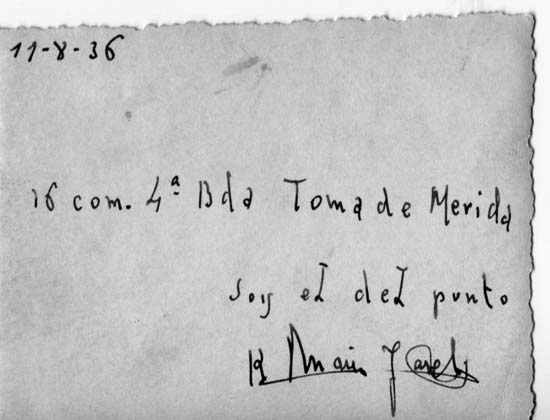 11-8-36
16 com. 4ª Bda Toma de Merida
soy el del punto